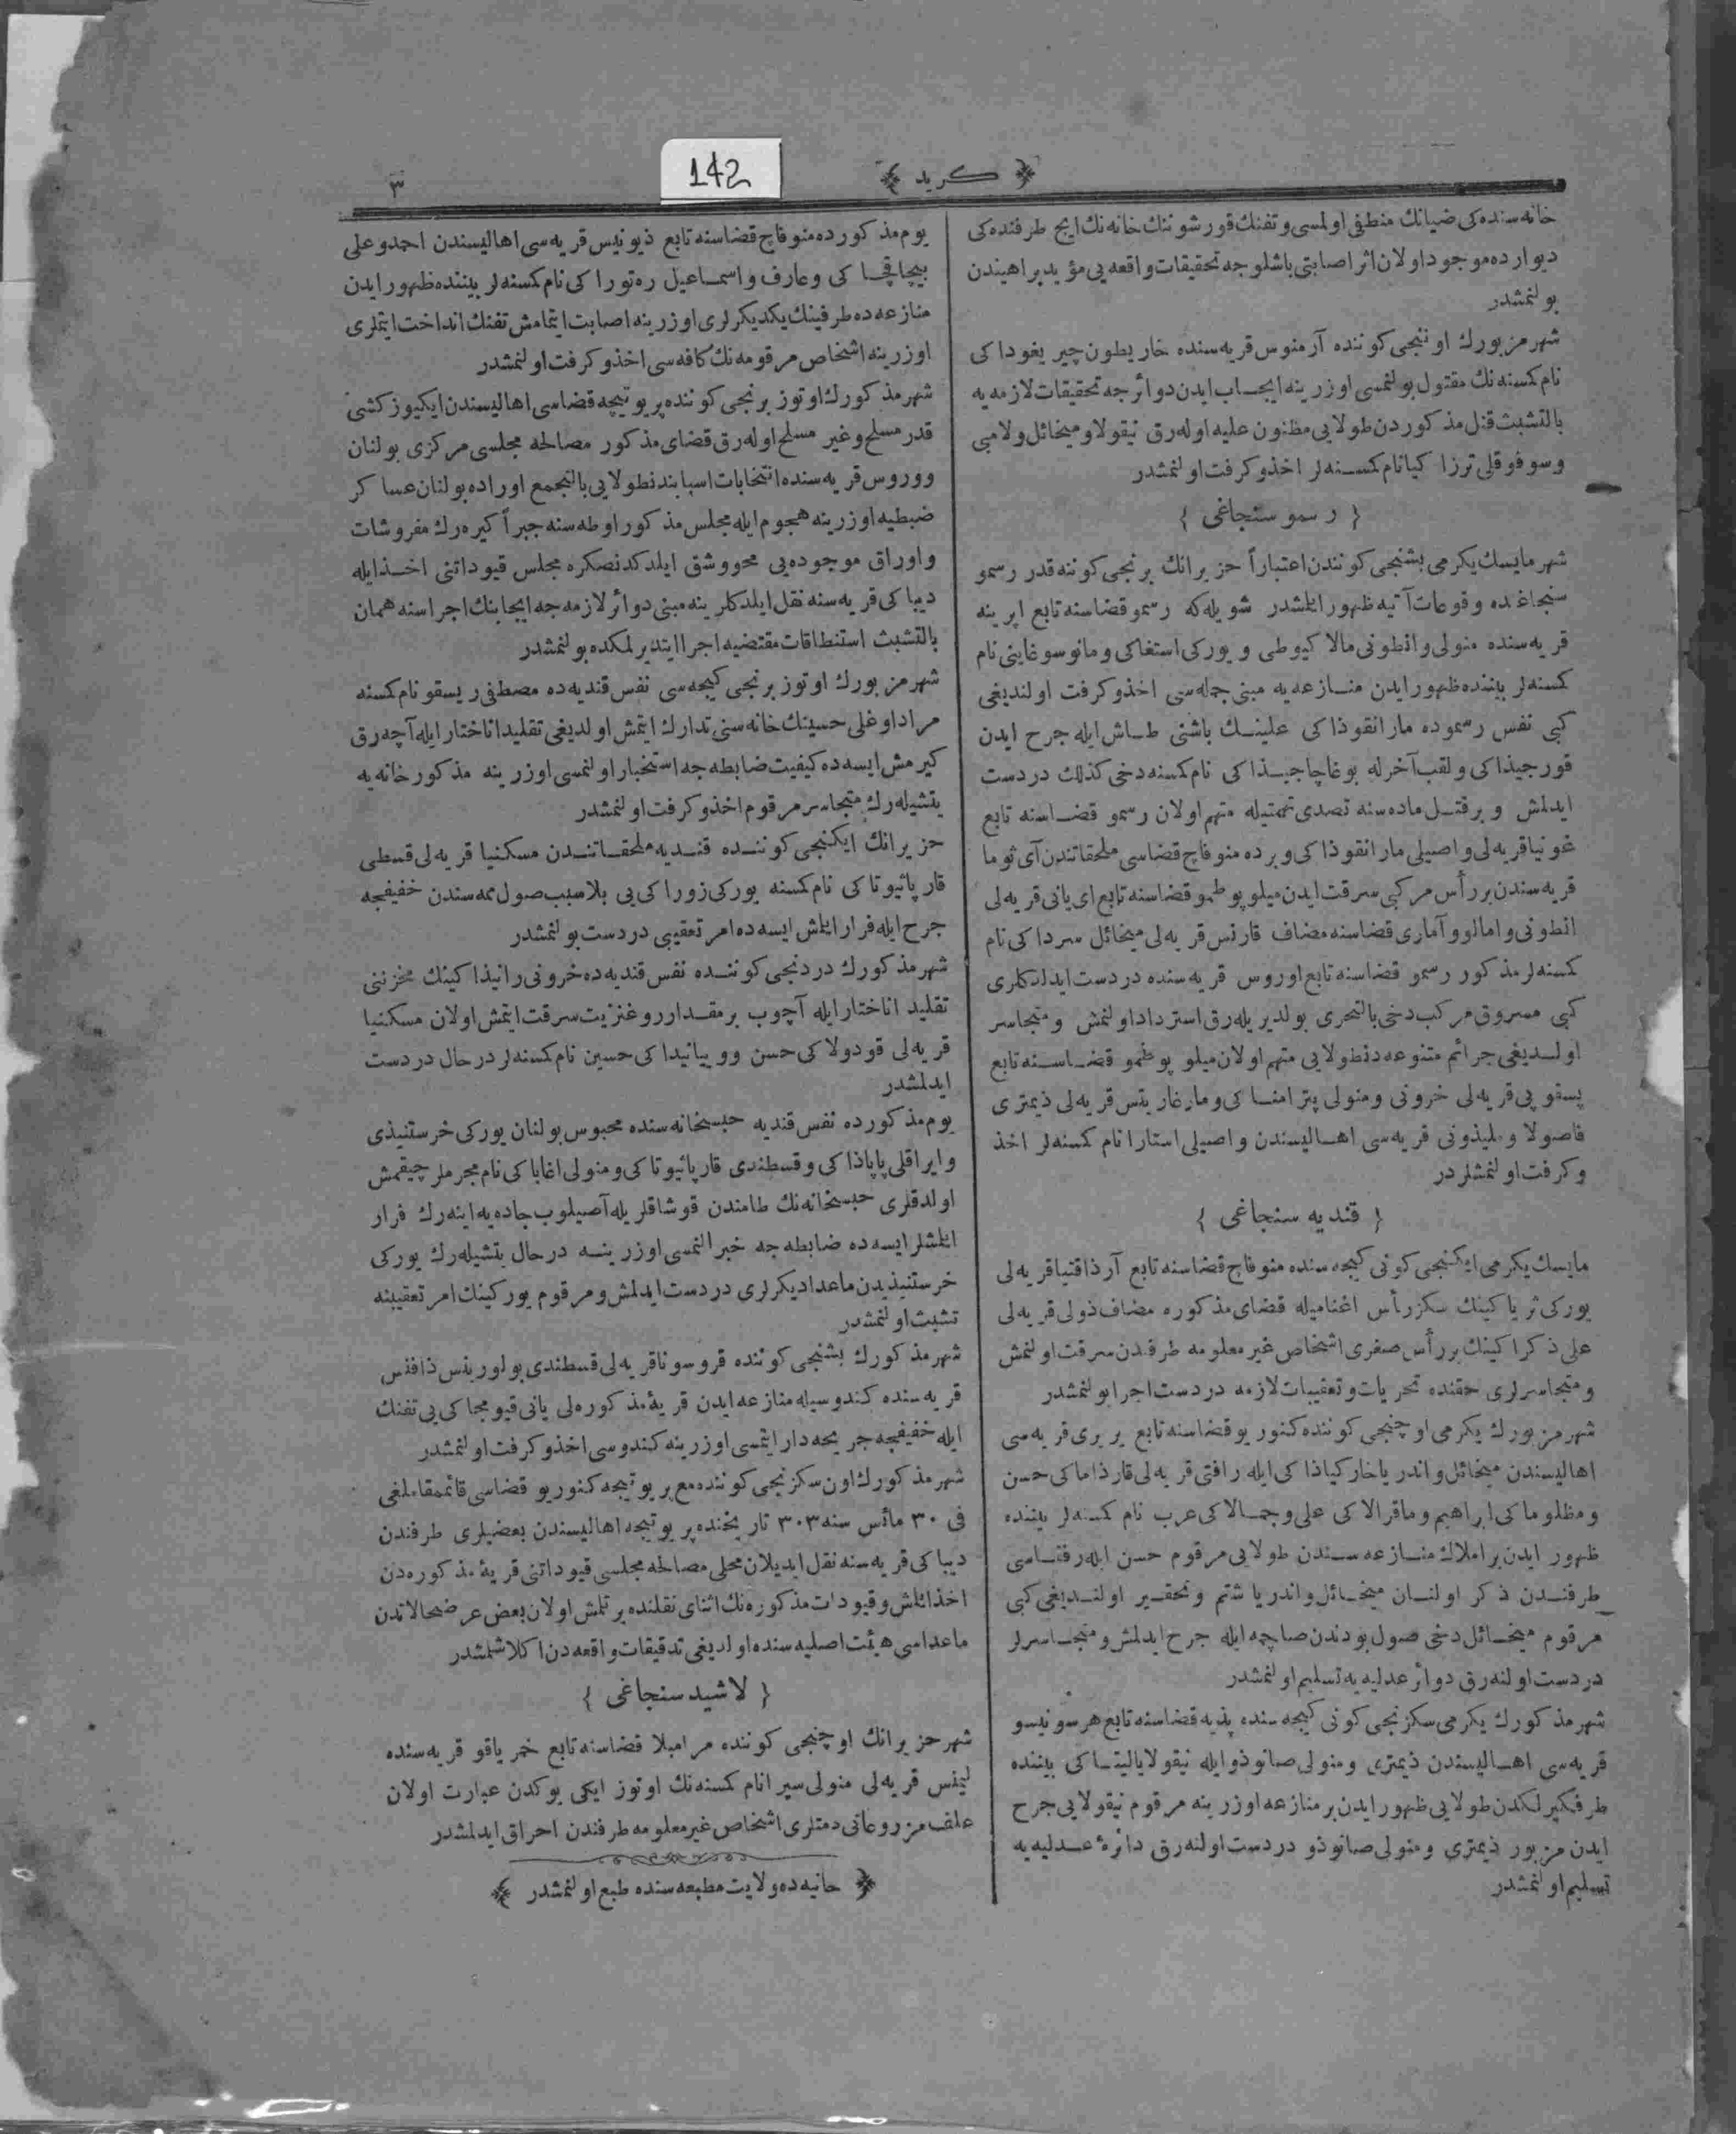 142
﴿ كريد ﴾
٣
خانه سنده كى ضيانك منطفى اولمسى وتفنك قورشوننك خانه نك ايچ طرفنده كى
ديوارده موجود اولان اثر اصابتى باشلوجه تحقيقات واقعه يى مؤيد براهيندن
بولنمشدر
شهر مزبورك اوننجى كوننده آرمنوس قريه سنده خاريطون چيريغوداكى
نام كسنه نك مقتول بولنمسى اوزرينه ايجاب ايدن دوائرجه تحقيقات لازمه يه
بالتشبث قتل مذكوردن طولايى مظنون عليه اوله رق نيقولا وميخائل ولامبى
وسوفوقلى ترزا كيانام كسنه لر اخذ وكرفت اولنمشدر
{ رسمو سنجاغى }
شهر مايسك يكرمى بشنجى كونندن اعتباراً حزيرانك برنجى كوننه قدر رسمو
سنجاغنده وقوعات آتيه ظهور ايتمشدر شويله كه رسمو قضاسنه تابع ايرينه
قريه سنده منولى وانطونى مالا كيوطى و يوركى استغاكى ومانوسوغاينى نام
كسنه لر بيننده ظهور ايدن منازعه يه مبنى جمله سى اخذ وكرفت اولنديغى
كبى نفس رسموده مارانقوذاكى علينك باشنى طاش ايله جرح ايدن
قورجيذاكى ولقب آخرله بوغاچاجيذاكى نام كسنه دخى كذلك دردست
ايدلمش و برقتل ماده سنه تصدى تهمتيله متهم اولان رسمو قضاسنه تابع
غونيا قريه لى واصيلى مارانقوذاكى وبرده منوفاچ قضاسى ملحقاتندن آى ثوما
قريه سندن بررأس مركبى سرقت ايدن ميلوپوطمو قضاسنه تابع اى يانى قريه لى
انطونى وامالوو آمارى قضاسنه مضاف قارنس قريه لى ميخائل سرداكى نام
كسنه لر مذكور رسمو قضاسنه تابع اوروس قريه سنده دردست ايدلدكلرى
كبى مسروق مركب دخى بالتحرى بولديريله رق استرداد اولنمش ومتجاسر
اولديغى جرائم متنوعه دنطولايى متهم اولان ميلوپوطمو قضاسنه تابع
پسقوپى قريه لى خرونى ومنولى پترامناكى ومارغاريتس قريه لى ذيمترى
فاصولا ومليذونى قريه سى اهاليسندن واصيلى استارا نام كسنه لر اخذ
وكرفت اولنمشلردر
{ قنديه سنجاغى }
مايسك يكرمى ايكنجى كونى كيجه سنده منوفاچ قضاسنه تابع آرذاقتيا قريه لى
يوركى ثرياكينك سكزرأس اغناميله قضاى مذكوره مضاف ذولى قريه لى
على ذكراكينك بررأس صغرى اشخاص غير معلومه طرفندن سرقت اولنمش
ومتجاسرلرى حقنده تحريات وتعقيبات لازمه دردست اجرا بولنمشدر
شهر مزبورك يكرمى اوچنجى كوننده كنوريو قضاسنه تابع بربرى قريه سى
اهاليسندن ميخائل واندريا خاركياذاكى ايله رافتى قريه لى قارذاماكى حسن
ومظلوماكى ابراهيم وماقرالاكى على وجمالاكى عرب نام كسنه لر بيننده
ظهور ايدن براملاك منازعه سندن طولايى مرقوم حسن ايله رفقاسى
طرفندن ذكر اولنان ميخائل واندريا شتم وتحقير اولنديغى كبى
مرقوم ميخائل دخى صول بودندن صاچمه ايله جرح ايدلمش ومتجاسرلر
دردست اولنه رق دوائر عدليه يه تسليم اولنمشدر
شهر مذكورك يكرمى سكزنجى كونى كيجه سنده پذيه قضاسنه تابع هرسونيسو
قريه سى اهاليسندن ذيمترى ومنولى صانوذو ايله نيقولا ياليتاكى بيننده
طرفكيرلكدن طولايى ظهور ايدن برمنازعه اوزرينه مرقوم نيقولايى جرح
ايدن مزبور ذيمترى ومنولى صانوذو دردست اولنه رق دائرۀ عدليه يه
تسليم اولنمشدر
يوم مذكورده منوفاچ قضاسنه تابع ذيونيس قريه سى اهاليسندن احمد وعلى
بيچاقچاكى وعارف واسماعيل ره توراكى نام كسنه لر بيننده ظهور ايدن
منازعه ده طرفينك يكديكرلرى اوزرينه اصابت ايتمامش تفنك انداخت ايتملرى
اوزرينه اشخاص مرقومه نك كافه سى اخذ وكرفت اولنمشدر
شهر مذكورك اوتوز برنجى كوننده پريوتيچه قضاسى اهاليسندن ايكيوز كشى
قدر مسلح وغير مسلح اوله رق قضاى مذكور مصالحه مجلسى مركزى بولنان
ووروس قريه سنده انتخابات اسبابندنطولايى بالتجمع اوراده بولنان عساكر
ضبطيه اوزرينه هجوم ايله مجلس مذكور اوطه سنه جبراً كيره رك مفروشات
واوراق موجوده يى محو وشق ايلدكدنصكره مجلس قيوداتنى اخذ ايله
ديباكى قريه سنه نقل ايلدكلرينه مبنى دوائر لازمه جه ايجابنك اجراسنه همان
بالتشبث استنطاقات مقتضيه اجرا ايتديرلمكده بولنمشدر
شهر مزبورك اوتوز برنجى كيجه سى نفس قنديه ده مصطفى ريسقو نام كسنه
مراد اوغلى حسينك خانه سنى تدارك ايتمش اولديغى تقليد اناختار ايله آچه رق
كيرمش ايسه ده كيفيت ضابطه جه استخبار اولنمسى اوزرينه مذكور خانه يه
يتشيله رك متجاسر مرقوم اخذ وكرفت اولنمشدر
حزيرانك ايكنجى كوننده قنديه ملحقاتندن مسكنيا قريه لى قسطى
قارپاثيوتاكى نام كسنه يوركى زوراكى يى بلاسبب صول ممه سندن خفيفجه
جرح ايله فرار ايتمش ايسه ده امر تعقيبى دردست بولنمشدر
شهر مذكورك دردنجى كوننده نفس قنديه ده خرونى رانيذاكينك مخزننى
تقليد اناختار ايله آچوب برمقدار روغنزيت سرقت ايتمش اولان مسكنيا
قريه لى قودولاكى حسن وويپانيداكى حسين نام كسنه لر درحال دردست
ايدلمشدر
يوم مذكورده نفس قنديه حبسخانه سنده محبوس بولنان يوركى خرستنيذى
وايراقلى پاپاذاكى وقسطندى قارپاثيوتاكى ومنولى اغاباكى نام مجرملر چيقمش
اولدقلرى حبسخانه نك طامندن قوشاقلريله آصيلوب جاده يه اينه رك فرار
ايتمشلر ايسه ده ضابطه جه خبر النمسى اوزرينه درحال يتشيله رك يوركى
خرستنيذيدن ماعدا ديكرلرى دردست ايدلمش ومرقوم يوركينك امر تعقيبنه
تشبث اولنمشدر
شهر مذكورك بشنجى كوننده قروسونا قريه لى قسطندى بولورينس ذافنس
قريه سنده كندوسيله منازعه ايدن قريۀ مذكوره لى يانى قيومجاكى يى تفنك
ايله خفيفجه جريحه دار ايتمسى اوزرينه كندوسى اخذ وكرفت اولنمشدر
شهر مذكورك اون سكزنجى كوننده مع پريوتيچه كنوريو قضاسى قائممقاملغى
فى ٣٠ مائس سنه ٣٠٣ تاريخنده پريوتيچه اهاليسندن بعضيلرى طرفندن
ديباكى قريه سنه نقل ايديلان محلى مصالحه مجلسى قيوداتنى قريۀ مذكوره دن
اخذ ايتمش وقيودات مذكوره نك اثناى نقلنده يرتلمش اولان بعض عرضحالاتدن
ماعداسى هيئت اصليه سنده اولديغى تدقيقات واقعه دن اكلاشلمشدر
{ لاشيد سنجاغى }
شهر حزيرانك اوچنجى كوننده مرامبلا قضاسنه تابع خمرياقو قريه سنده
ليمنس قريه لى منولى سيرا نام كسنه نك اوتوز ايكى يوكدن عبارت اولان
علف مزروعاتى دمتلرى اشخاص غير معلومه طرفندن احراق ايدلمشدر
﴿ حانيه ده ولايت مطبعه سنده طبع اولنمشدر ﴾